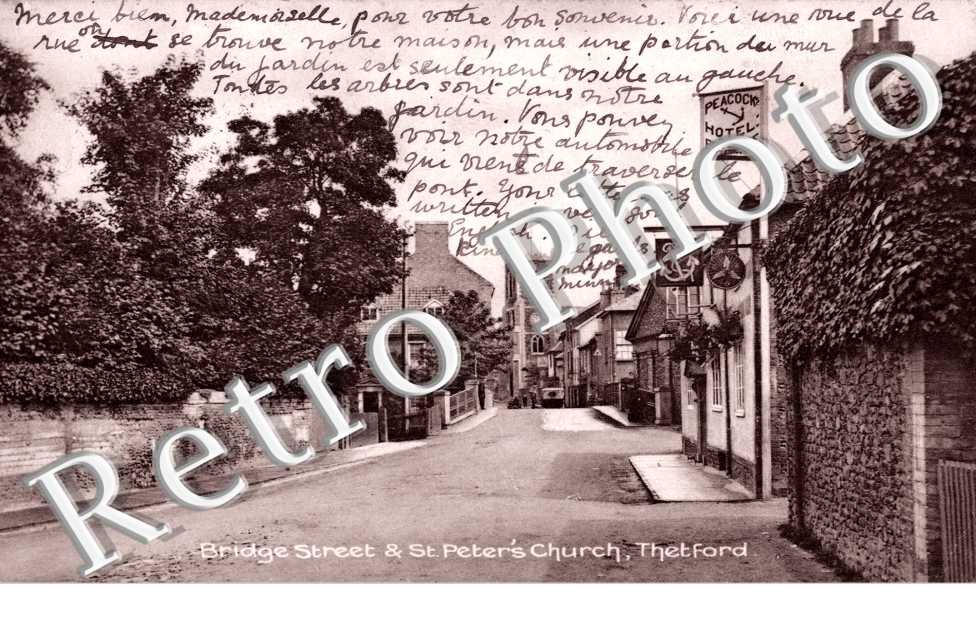 Merci bien, Mademoiselle, pour votre bon souvenir. Voici une vue de la
rue où dont se trouve notre maison, mais une portion du mur
du jardin est seulement visible au gauche.
Toutes les arbres sont dans notre
jardin. Vous pouvez
voir notre automobile
qui vient de traverser le
pont. Your letter is
written very
English.
PEACOCK
HOTEL
Retro Photo
Bridge Street & St. Peter's Church, Thetford